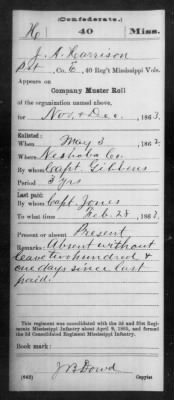 (Confederate.)
H 40 Miss.
J. A. Harrison
Pvt., Co. E, 40 Reg't Mississippi Vols.
Appears on
Company Muster Roll
of the organization named above,
for Nov. & Dec., 1863.
Enlisted:
When May 3, 1862
Where Neshoba Co.
By whom Capt. Gibbens
Period 3 yrs
Last paid:
By whom Capt. Jones
To what time Feb. 28, 1863.
Present or absent Present
Remarks: Absent without
leave two hundred &
one days since last
paid.
This regiment was consolidated with the 3d and 31st Regiments
Mississippi Infantry about April 9, 1865, and formed
the 3d Consolidated Regiment Mississippi Infantry.
Book mark:
J B Dowd
(642) Copyist